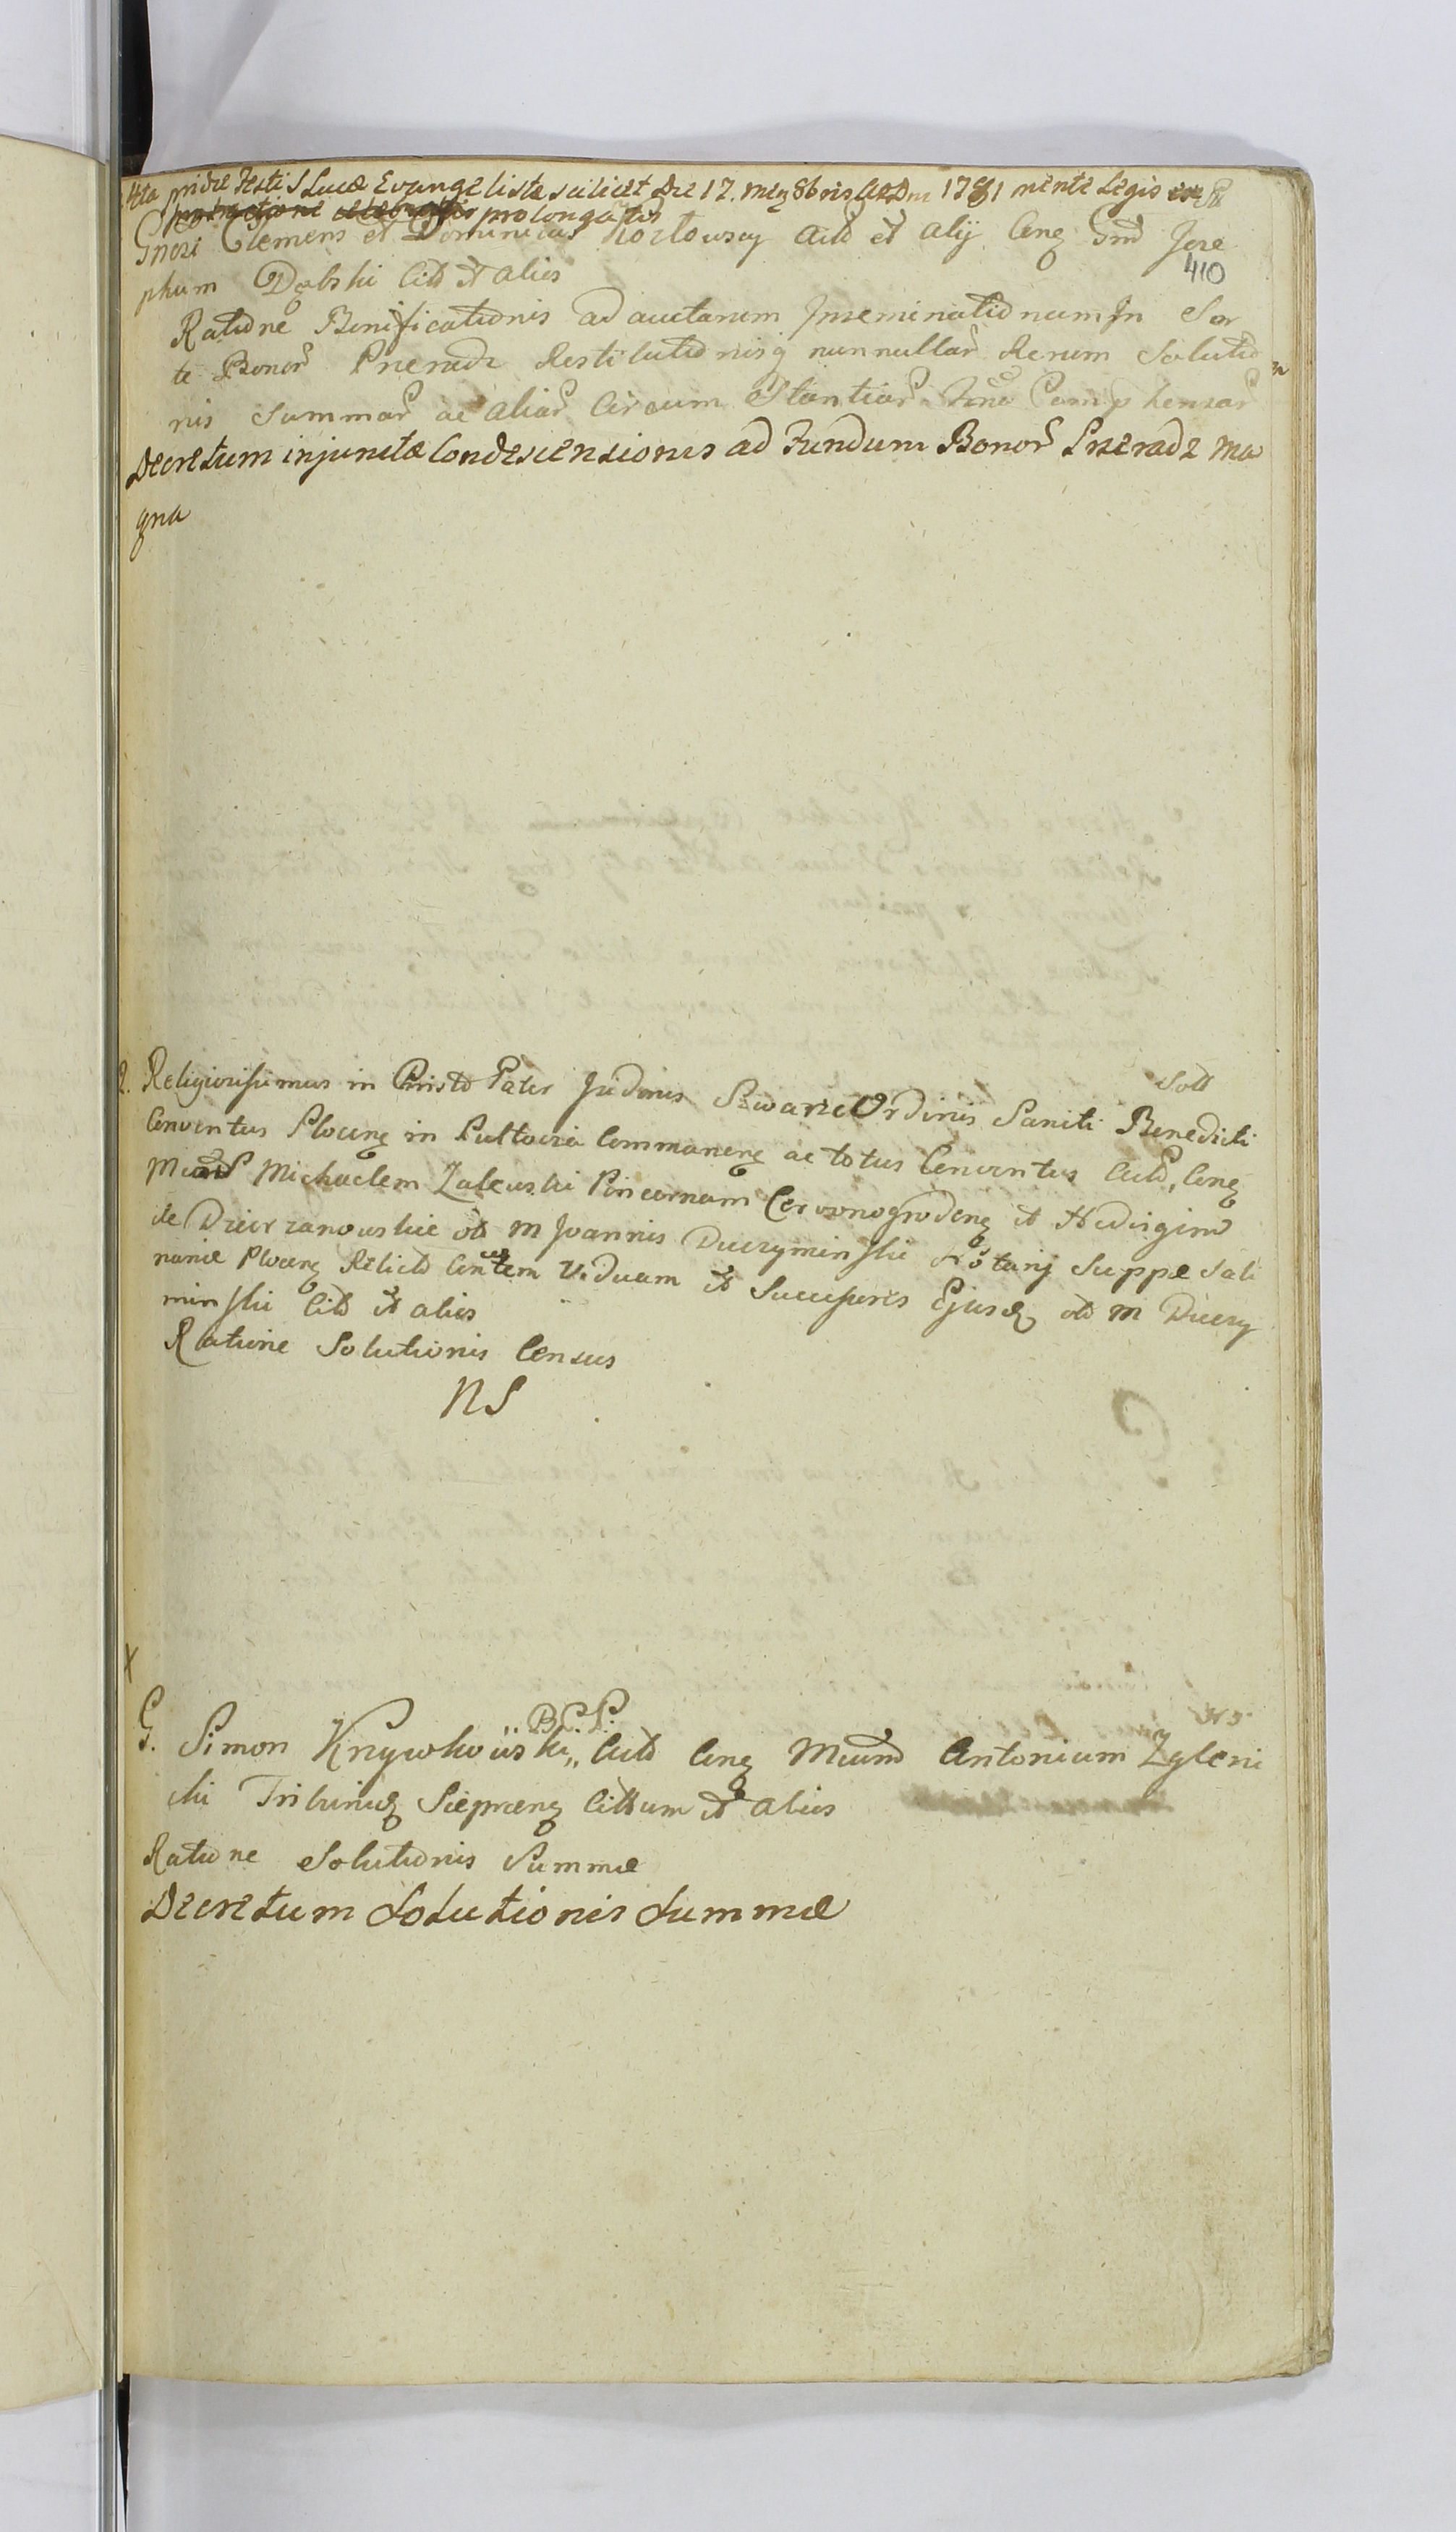 Acta pridie Festi S Lucæ Evangelistæ scilicet Die 17. Menz 8bris A D 1781 mente Legis
prolongatis
Gnosi Clemens et Dominicus Kozłowscy Actō et alij Conz Gnd Jose
410
phum Dąbski Citō et alios
Ratione Bonificationis ad auctarum Inseminationum In Sor
te Bonor Pneradz Restitutionisq nonnullar Rerum Solutio
nis Summar ac aliar Circum Stantiar
Decretum injunctæ Condescensionis ad Fundum Bonor Sneradz Ma
gna
2. Religiosissimus in Christo Pater Isidorus Ordinis Sancti Benedicti
Conventus Plocenz in Pultovia Commanenz ac totus Conventus Actō, Conz
Michaelem Zaleuski Pincernam Czervonogrodenz et Hedvigim
de Dzierzanowskie olō M Joannis Duczyminskie Notarij Suppe Sali
nariæ Plocenz Relictō Viduam et Successores Ejusdz olō M Duczy
minskie Citō et alios
Ratione Solutionis Census
NS
X
G. Simon Krzywkowski Actō Conz Mcum Antonium Zgleni
cki Tribunuz Sieprcenz Cittum et alios
Ratione Solutionis Summæ
Decretum Solutionis Summæ